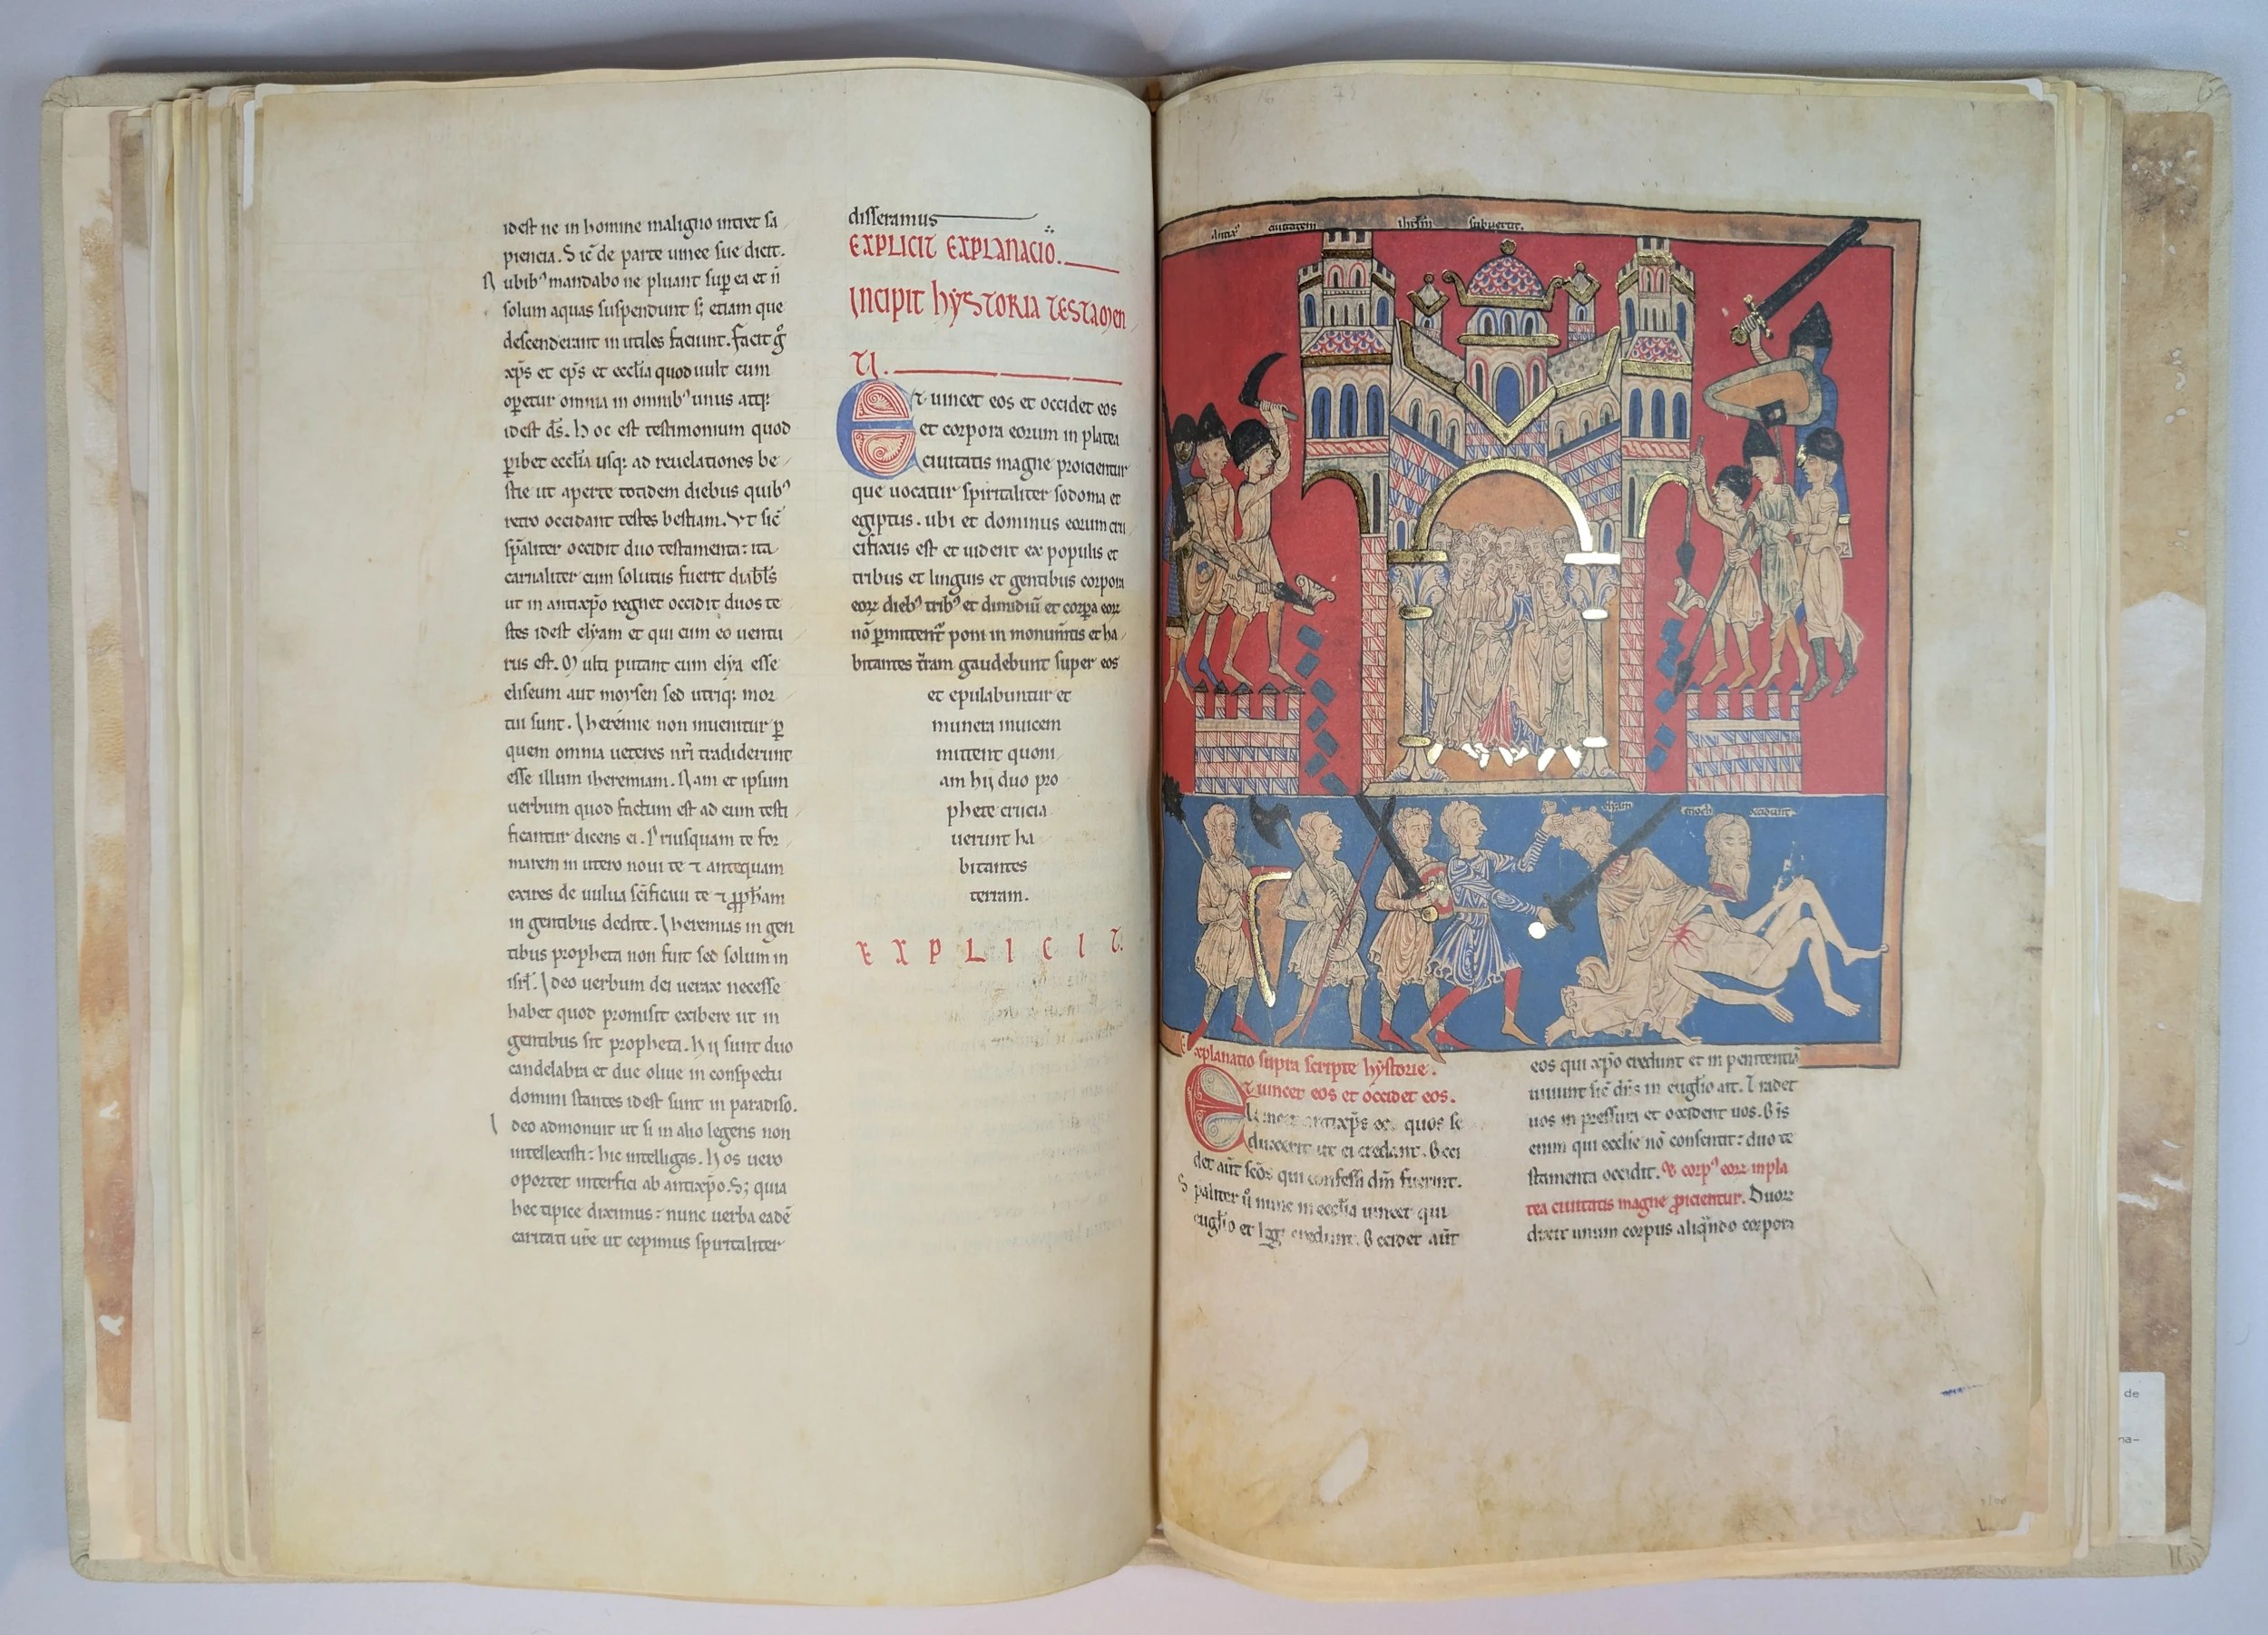 idest ne in homine maligno intret sa
piencia. Sic̄ de parte uinee sue dicit.
Nubibꝰ mandabo ne pluant suꝑ ea et ñ
solum aquas suspendunt sꝫ etiam que
descenderant inutiles faciunt. facit gͦ
xp̄s et ep̄s et eccl̄ia quod uult cum
oꝑetur omnia in omnibꝰ unus atqꝫ
idest d̄s. hoc est testimonium quod
ꝑibet eccl̄ia usqꝫ ad reuelationes be
stie ut aperte totidem diebus quibꝰ
retro occidant testes bestiam. Vt sic̄
sp̄aliter occidit duo testamenta: ita
carnaliter cum solutus fuerit diabl̄s
ut in antixp̄o regnet occidit duos te
stes idest elyam et qui cum eo uentu
rus est. Multi putant cum elya esse
eliseum aut moysen sed utriqꝫ mor
tui sunt. Iheremie non inuenitur ꝑ
quem omnia ueteres nr̄i tradiderunt
esse illum iheremiam. Nam et ipsum
uerbum quod factum est ad eum testi
ficantur dicens ei. Priusquam te for
marem in utero noui te ⁊ antequam
exires de uulua sc̄ificaui te ⁊ ꝓph̄am
in gentibus dedite. Iheremias in gen
tibus propheta non fuit sed solum in
isrl̄. Ideo uerbum dei uerax necesse
habet quod promisit exibere ut in
gentibus sit propheta. hij sunt duo
candelabra et due oliue in conspectu
domini stantes idest sunt in paradiso.
Ideo admonuit ut si in alio legens non
intellexisti: hic intelligas. hos uero
oportet interfici ab antixp̄o. Sꝫ quia
hec tipice diximus: nunc uerba eadē
caritati ur̄e ut cepimus spiritaliter
disseramus
EXPLICIT EXPLANACIO.
INCIPIT HYSTORIA TESTAMEN
TI.
Et uincet eos et occidet eos
et corpora eorum in platea
ciuitatis magne proicientur
que uocatur spiritaliter sodoma et
egiptus. ubi et dominus eorum cru
cifixus est et uident ex populis et
tribus et linguis et gentibus corpora
eoꝝ diebꝰ tribꝰ et dimidiū et corꝑa eoꝝ
nō ꝑmittent̄ poni in monum̄tis et ha
bitantes t̄ram gaudebunt super eos
et epulabuntur et
munera inuicem
mittent quoni
am hij duo pro
phete crucia
uerunt ha
bitantes
terram.
EXPLICIT.
antixꝰ ciuitatem ihrlm̄ subuertit.
elyam enoch occidunt.
Explanatio supra scripte hystorie.
Et uincet eos et occidet eos.
antixp̄s eos quos se
duxerit ut ei credant. Occi
det aūt sc̄os qui confessi dm̄ fuerint.
Spaliter u̇ nunc in eccl̄ia uincet qui
eugl̄io et legi credunt. Occidet aūt
eos qui xp̄o credunt et in penitentiā
uiuunt sic̄ dn̄s in eugl̄io ait. Tradet
uos in pressura et occident uos. Oīs
enim qui ecclie nō consentit: duo te
stamenta occidit. Et corpꝰ eoꝝ in pla
tea ciuitatis magne ꝓicientur. Duoꝝ
dixit unum corpus aliqn̄do corpora
de
na-